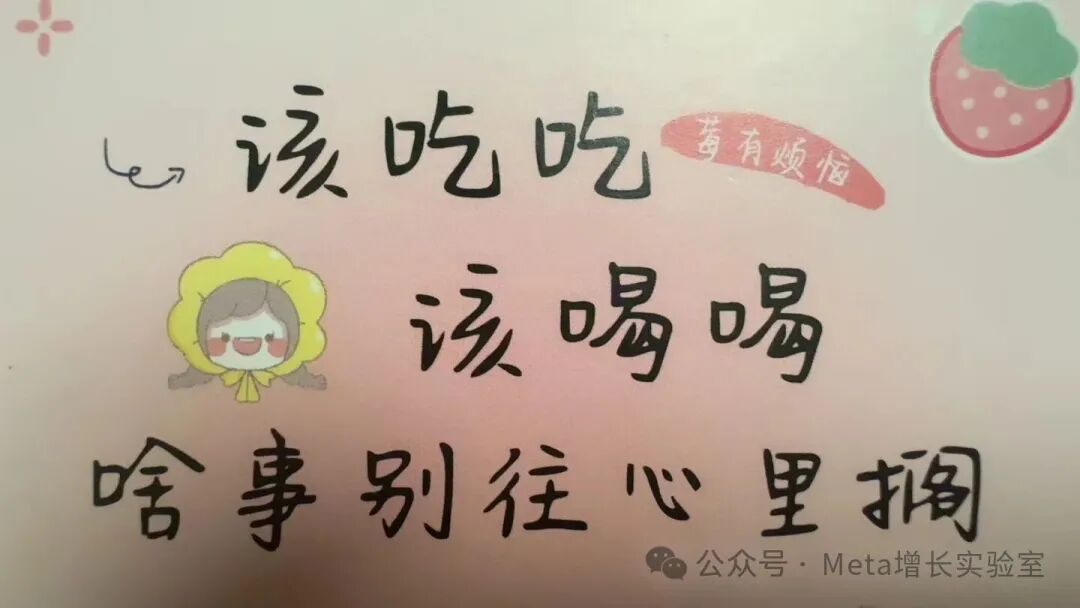 该吃吃
莓有烦恼
该喝喝
啥事别往心里搁
公众号·Meta增长实验室